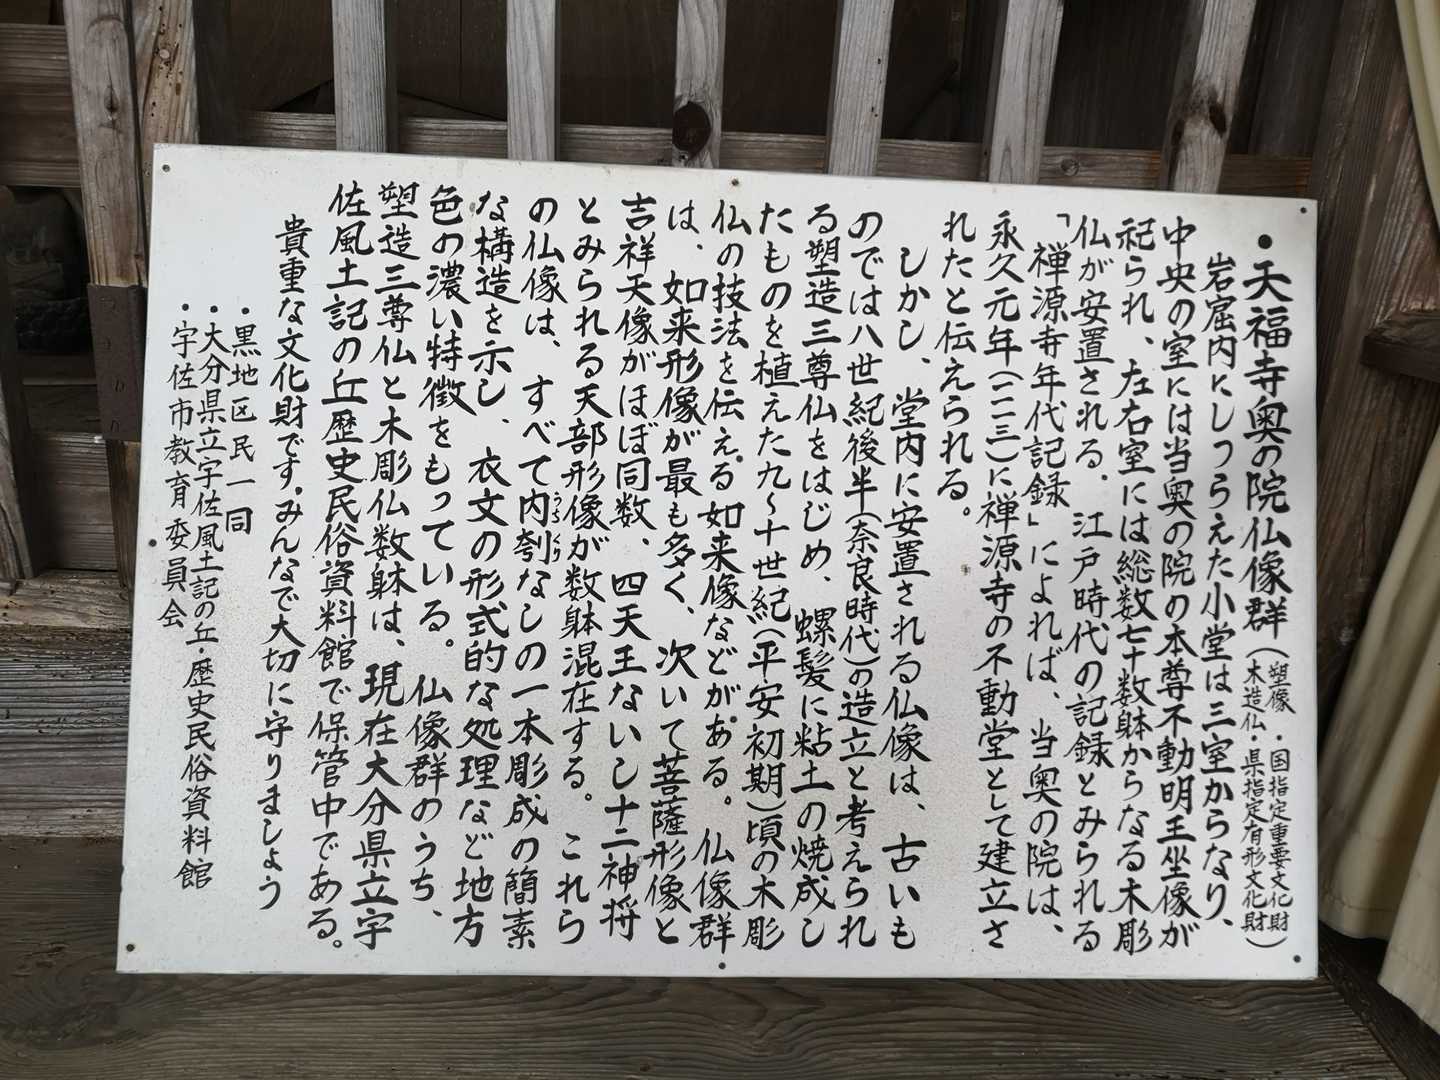 ●天福寺奥の院仏像群（塑像・国指定重要文化財
木造仏・県指定有形文化財）
岩窟内にしつらえた小堂は三室からなり、
中央の室には当奥の院の本尊不動明王坐像が
祀られ、左右室には総数七十数躰からなる木彫
仏が安置される。江戸時代の記録とみられる
「禅源寺年代記録」によれば、当奥の院は、
永久元年（一一一三）に禅源寺の不動堂として建立さ
れたと伝えられる。
しかし、堂内に安置される仏像は、古いも
のでは八世紀後半（奈良時代）の造立と考えられ
る塑造三尊仏をはじめ、螺髪に粘土の焼成し
たものを植えた九〜十世紀（平安初期）頃の木彫
仏の技法を伝える如来像などがある。仏像群
は、如来形像が最も多く、次いで菩薩形像と
吉祥天像がほぼ同数、四天王ないし十二神将
とみられる天部形像が数躰混在する。これら
の仏像は、すべて内刳なしの一本彫成の簡素
うちぐり
な構造を示し、衣文の形式的な処理など地方
色の濃い特徴をもっている。仏像群のうち、
塑造三尊仏と木彫仏数躰は、現在大分県立宇
佐風土記の丘歴史民俗資料館で保管中である。
貴重な文化財です。みんなで大切に守りましょう
・黒地区民一同
・大分県立宇佐風土記の丘・歴史民俗資料館
・宇佐市教育委員会